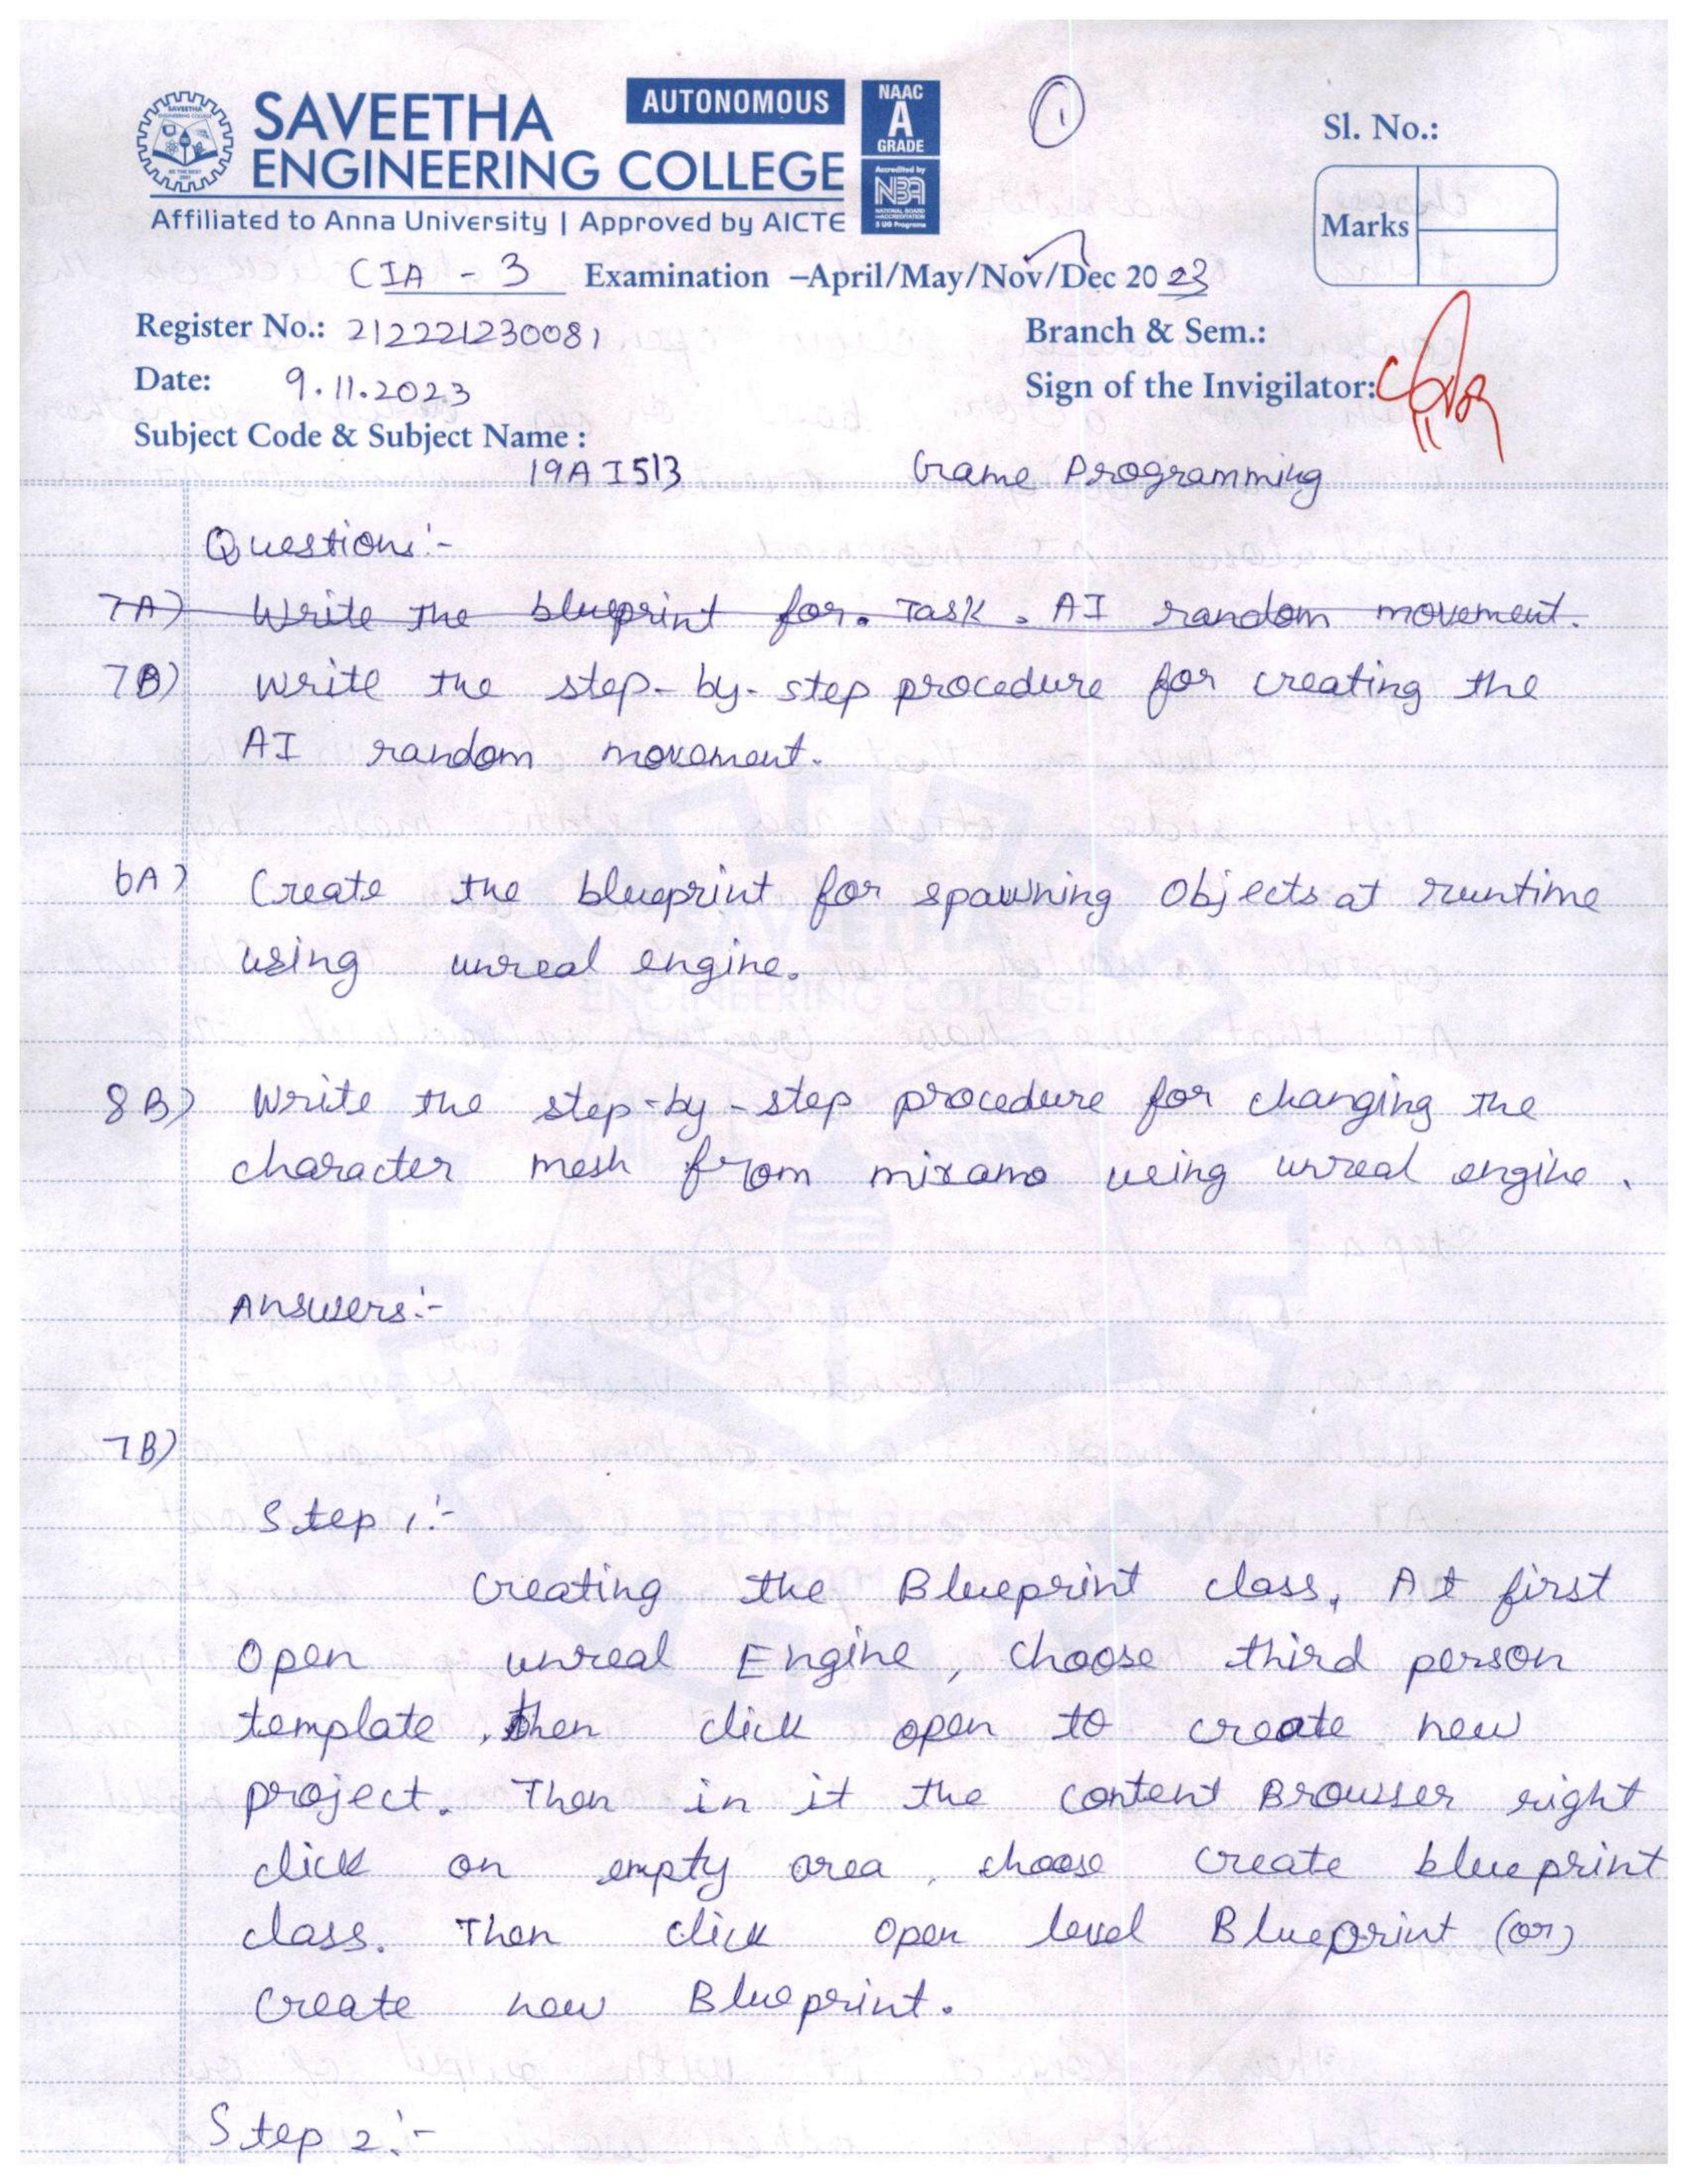 SAVEETHA
ENGINEERING COLLEGE
AUTONOMOUS
NAAC
A
GRADE
Accredited by
NBA
NATIONAL BOARD
of ACCREDITATION
5 UG Programs
Affiliated to Anna University | Approved by AICTE
1
Sl. No.:
Marks
CIA - 3 Examination –April/May/Nov/Dec 2023
Register No.: 212221230081
Branch & Sem.:
Date: 9.11.2023
Sign of the Invigilator:
Subject Code & Subject Name :
19AI513 Game Programming
Question:-
7A) Write the blueprint for. Task. AI random movement.
7B) Write the step-by-step procedure for creating the
AI random movement.
6A) Create the blueprint for spawning Objects at runtime
using unreal engine.
8B) Write the step-by-step procedure for changing the
character mesh from mixamo using unreal engine.
Answers:-
7B)
Step 1:-
Creating the Blueprint class, At first
Open unreal Engine, choose third person
template, then click open to create new
project. Then in it the content Browser right
click on empty area, choose create blueprint
class. Then click open level Blueprint (or)
Create new Blueprint.
Step 2:-